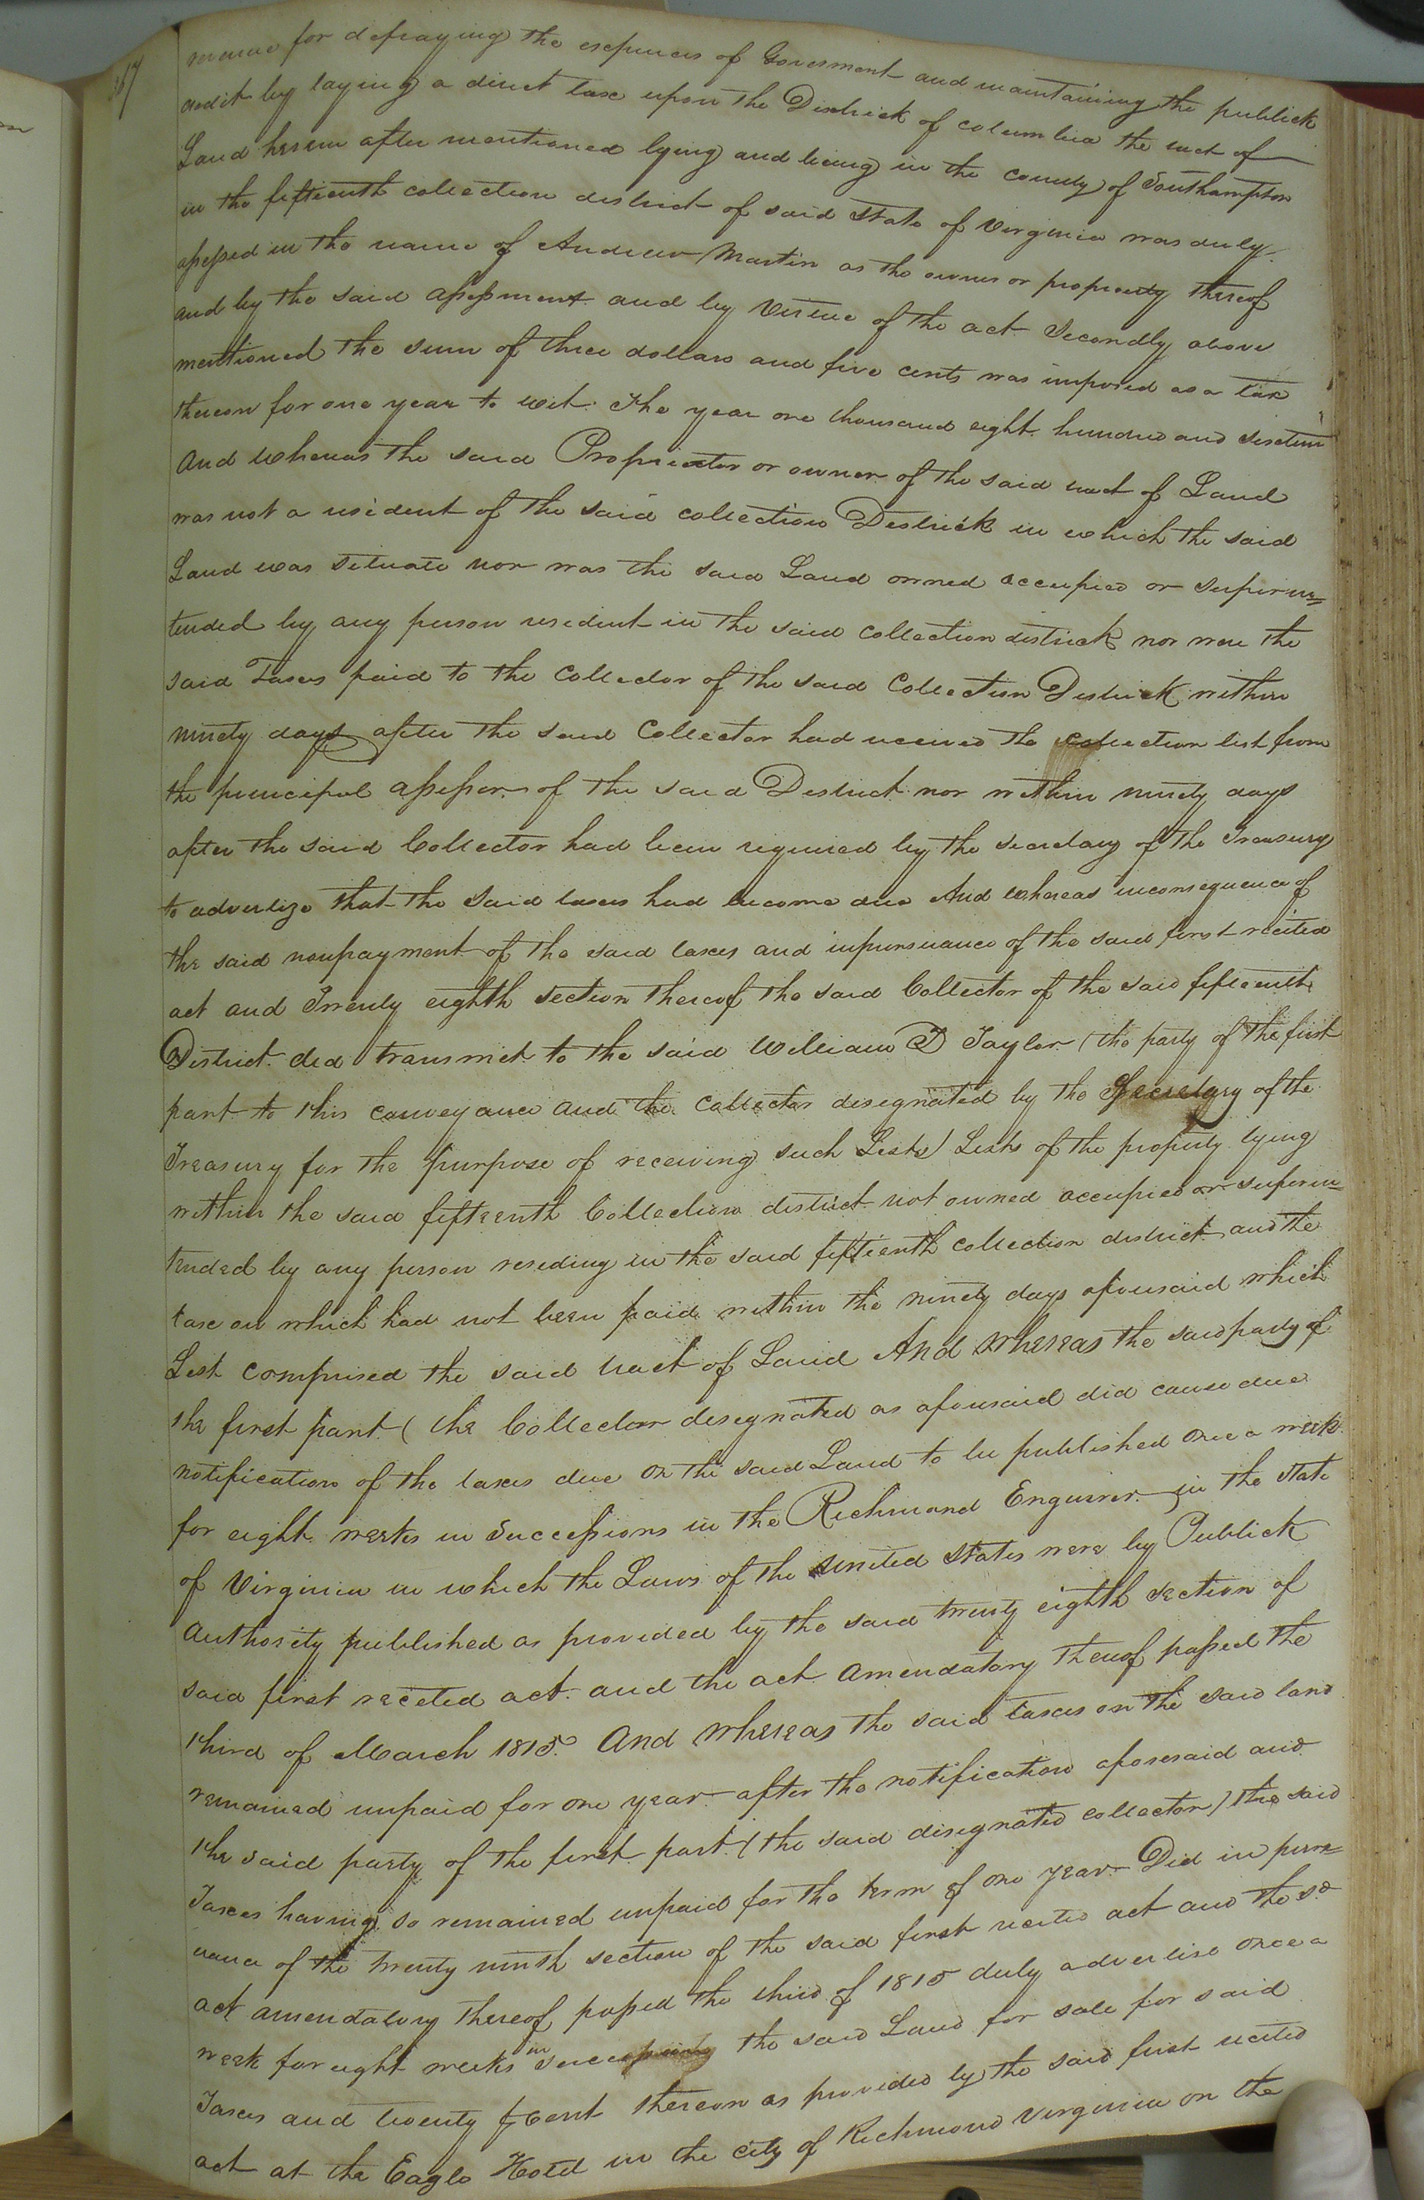 167
revenue for defraying the expences of Goverment and maintaining the publick
credit by laying a direct taxe upon the Districk of columbia the tract of
Land herein after mentioned lying and being in the county of Southampton
in the fifteenth collection district of said State of Virginia was duly
assessed in the name of Andrew Martin as the owner or propriety thereof
and by the said assessment and by Virtue of the act Secondly above
mentioned the sum of three dollars and five cents was imposed as a tax
thereon for one year to wit. The year one thousand eight hundred and sixteen
and whereas the said Proprietor or owner of the said tract of Land
was not a resident of the said collection Destrick in which the said
Land was situate nor was the said Land owned occupied or superin=
tended by any person resident in the said collection districk nor were the
said Taxes paid to the Collector of the said Collection Districk within
ninety days after the said Collector had received the collection list from
the principal assessor of the said District nor within ninety days
after the said Collector had been required by the secretary of the Treasury
to advertize that the said taxes had become due And whereas inconsequence of
the said nonpayment of the said taxes and inpursuance of the said first recited
act and Twenty eighth section thereof the said Collector of the said fifteenth
District did transmit to the said William D Taylor (the party of the first
part to this conveyance and the Collector designated by the Secretary of the
Treasury for the purpose of receiving such Lists) Lists of the property lying
within the said fifteenth Collection district not owned occupied or superin=
tended by any person residing in the said fifteenth collection district and the
taxe on which had not been paid within the ninety days aforesaid which
List comprised the said tract of Land And Whereas the said party of
the first part (the Collector designated as aforesaid did cause due
notification of the taxes due on the said Land to be published once a week
for eight weeks in Successions in the Richmond Enquirer in the state
of Virginia in which the Laws of the united States were by Publick
authority published as provided by the said twenty eighth section of
said first recited act and the act amendatory thereof passed the
third of March 1815. And Whereas the said taxes on the said land
remained unpaid for one year after the notification aforesaid and
the said party of the first part (the said designated collector) the said
Taxes having so remained unpaid for the term of one year Did in pursu=
uance of the twenty ninth section of the said first recited act and the sd
act amendatory thereof passed the third of 1815 duly advertise once a
week for eight weeks in the said Land for sale for said
Taxes and twenty pcent thereon as provided by the said first recited
act at the Eagle Hotel in the city of Richmond Virginia on the